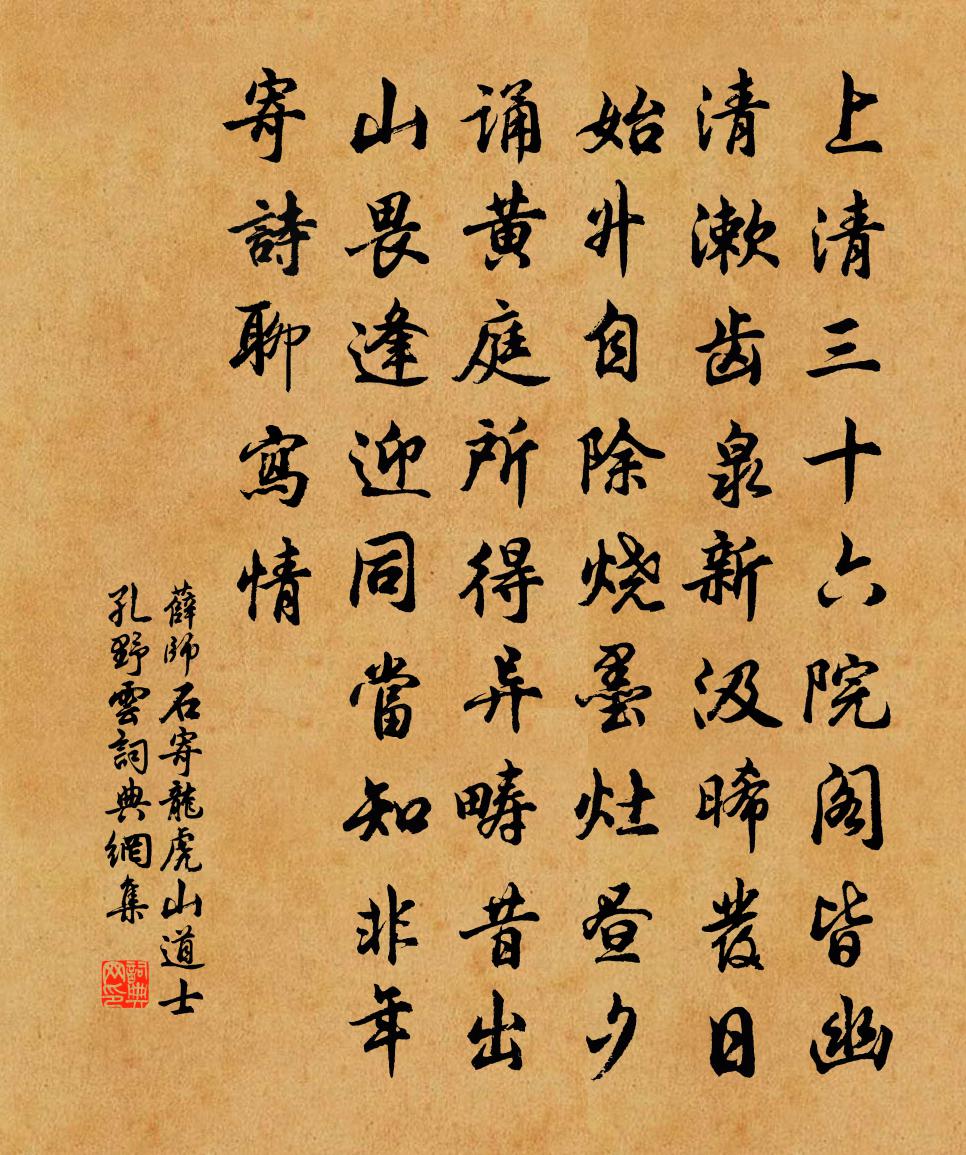 上清三十六院阁皆幽
清漱齿泉新汲晞發日
始升自除烧墨灶昼夕
诵黄庭所得异畴昔出
山畏逢迎同當知非年
寄詩聊寫情
薛師石寄龍虎山道士
孔野雲詞典網集
詞典网印